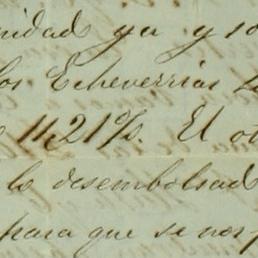 nidad ya y so
los Echeverrias
11,21%. El ot
lo desembolsad
para que se nos